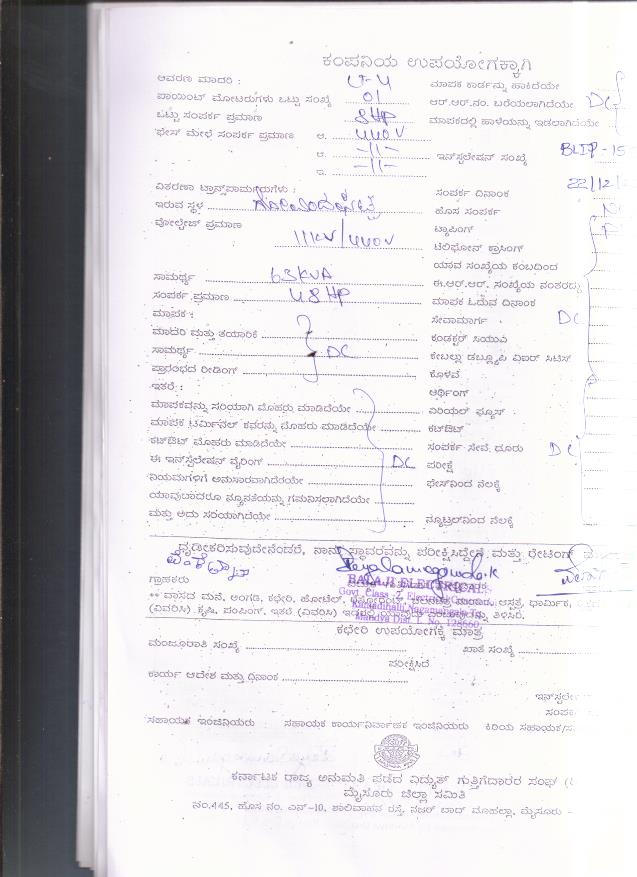 ಕಂಪನಿಯ ಉಪಯೋಗಕ್ಕಾಗಿ
ಆವರಣ ಮಾದರಿ : ಮಾಪಕ ಕಾರ್ಡನ್ನು ಹಾಕಿದೆಯೇ
ಪಾಯಿಂಟ್ ಮೋಟರುಗಳು ಒಟ್ಟು ಸಂಖ್ಯೆ 01 ಆರ್.ಆರ್.ನಂ. ಬರೆಯಲಾಗಿದೆಯೇ DC
ಒಟ್ಟು ಸಂಪರ್ಕ ಪ್ರಮಾಣ 8HP ಮಾಪಕದಲ್ಲಿ ಹಾಳೆಯನ್ನು ಇಡಲಾಗಿದೆಯೇ
ಫೇಸ್ ಮೇಳೆ ಸಂಪರ್ಕ ಪ್ರಮಾಣ ಅ. 440V
ಆ. -11- ಇನ್‌ಸ್ಟಲೇಷನ್ ಸಂಖ್ಯೆ BLIP-15
ಇ. -11-
ವಿತರಣಾ ಟ್ರಾನ್ಸ್‌ಪಾರ್ಮರುಗಳು : ಸಂಪರ್ಕ ದಿನಾಂಕ 22/12/
ಇರುವ ಸ್ಥಳ ಹೊಸ ಸಂಪರ್ಕ
ವೋಲ್ಟೇಜ್ ಪ್ರಮಾಣ ಟ್ಯಾಪಿಂಗ್
11KV/440V ಟೆಲಿಫೋನ್ ಕ್ರಾಸಿಂಗ್
ಯಾವ ಸಂಖ್ಯೆಯ ಕಂಬದಿಂದ
ಸಾಮರ್ಥ್ಯ 63KVA ಈ.ಆರ್.ಆರ್. ಸಂಖ್ಯೆಯ ನಂತರದ್ದು
ಸಂಪರ್ಕ ಪ್ರಮಾಣ 48HP ಮಾಪಕ ಓದುವ ದಿನಾಂಕ
ಮಾಪಕ : ಸೇವಾಮಾರ್ಗ DC
ಮಾದರಿ ಮತ್ತು ತಯಾರಿಕೆ ಕಂಡಕ್ಟರ್ ಸಿಯುವಿ
ಸಾಮರ್ಥ್ಯ DC ಕೇಬಲ್ಲು ಡಬ್ಲ್ಯೂಪಿ ವಿಐಆರ್ ಸಿಟಿಸ್
ಪ್ರಾರಂಭದ ರೀಡಿಂಗ್ ಕೊಳವೆ
ಇತರೆ : ಆರ್ಥಿಂಗ್
ಮಾಪಕವನ್ನು ಸರಿಯಾಗಿ ಮೊಹರು ಮಾಡಿದೆಯೇ ಏರಿಯಲ್ ಫ್ಯೂಸ್
ಮಾಪಕ ಟರ್ಮಿನಲ್ ಕವರನ್ನು ಮೊಹರು ಮಾಡಿದೆಯೇ ಕಟ್‌ಔಟ್
ಕಟ್‌ಔಟ್ ಮೊಹರು ಮಾಡಿದೆಯೇ ಸಂಪರ್ಕ ಸೇವೆ ದೂರು DC
ಈ ಇನ್‌ಸ್ಟಲೇಷನ್ ವೈರಿಂಗ್ DC ಪರೀಕ್ಷೆ
ನಿಯಮಗಳಿಗೆ ಅನುಸಾರವಾಗಿದೆಯೇ ಫೇಸ್‌ನಿಂದ ನೆಲಕ್ಕೆ
ಯಾವುದಾದರೂ ನ್ಯೂನತೆಯನ್ನು ಗಮನಿಸಲಾಗಿದೆಯೇ
ಮತ್ತು ಅದು ಸರಿಯಾಗಿದೆಯೇ ನ್ಯೂಟ್ರಲ್‌ನಿಂದ ನೆಲಕ್ಕೆ
ದೃಢೀಕರಿಸುವುದೇನೆಂದರೆ, ನಾನು ಸ್ಥಾವರವನ್ನು ಪರೀಕ್ಷಿಸಿದ್ದೇನೆ ಮತ್ತು ರೇಟಿಂಗ್
BALAJI ELECTRICAL
ಗ್ರಾಹಕರು
** ವಾಸದ ಮನೆ, ಅಂಗಡಿ, ಕಛೇರಿ, ಹೋಟೆಲ್, ಆಸ್ಪತ್ರೆ, ಧಾರ್ಮಿಕ,
(ವಿವರಿಸಿ) ಕೃಷಿ, ಪಂಪಿಂಗ್, ಇತರೆ (ವಿವರಿಸಿ) ತಿಳಿಸಿರಿ.
Mandya Dist. L. No. 128660
ಕಛೇರಿ ಉಪಯೋಗಕ್ಕೆ ಮಾತ್ರ
ಮಂಜೂರಾತಿ ಸಂಖ್ಯೆ ಖಾತೆ ಸಂಖ್ಯೆ
ಪರೀಕ್ಷಿಸಿದೆ
ಕಾರ್ಯ ಆದೇಶ ಮತ್ತು ದಿನಾಂಕ
ಇನ್‌ಸ್ಟಲೇ
ಸಂಪರ್ಕ
ಸಹಾಯಕ ಇಂಜಿನಿಯರು ಸಹಾಯಕ ಕಾರ್ಯನಿರ್ವಾಹಕ ಇಂಜಿನಿಯರು ಕಿರಿಯ ಸಹಾಯಕ/ಸ
ಕರ್ನಾಟಕ ರಾಜ್ಯ ಅನುಮತಿ ಪಡೆದ ವಿದ್ಯುತ್ ಗುತ್ತಿಗೆದಾರರ ಸಂಘ
ಮೈಸೂರು ಜಿಲ್ಲಾ ಸಮಿತಿ
ನಂ.445, ಹೊಸ ನಂ. ಎನ್-10, ಶಾಲಿವಾಹನ ರಸ್ತೆ, ನಜರ್ ಬಾದ್ ಮೊಹಲ್ಲಾ, ಮೈಸೂರು -